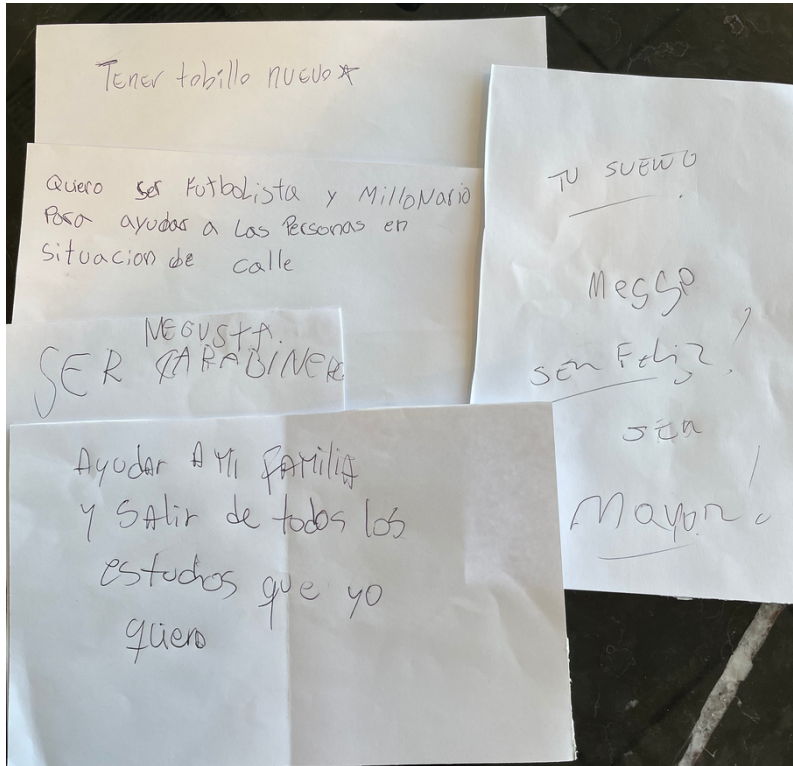 Tener tobillo nuevo
Quiero ser Futbolista y Millonario
Para ayudar a Las Personas en
situacion de calle
ME GUSTA.
SER CARABINERO
Ayudar A Mi FAMiliA
y SAlir de todos los
estudios que yo
quiero
TU SUEÑO
ser Feliz!
ser
Mayor!